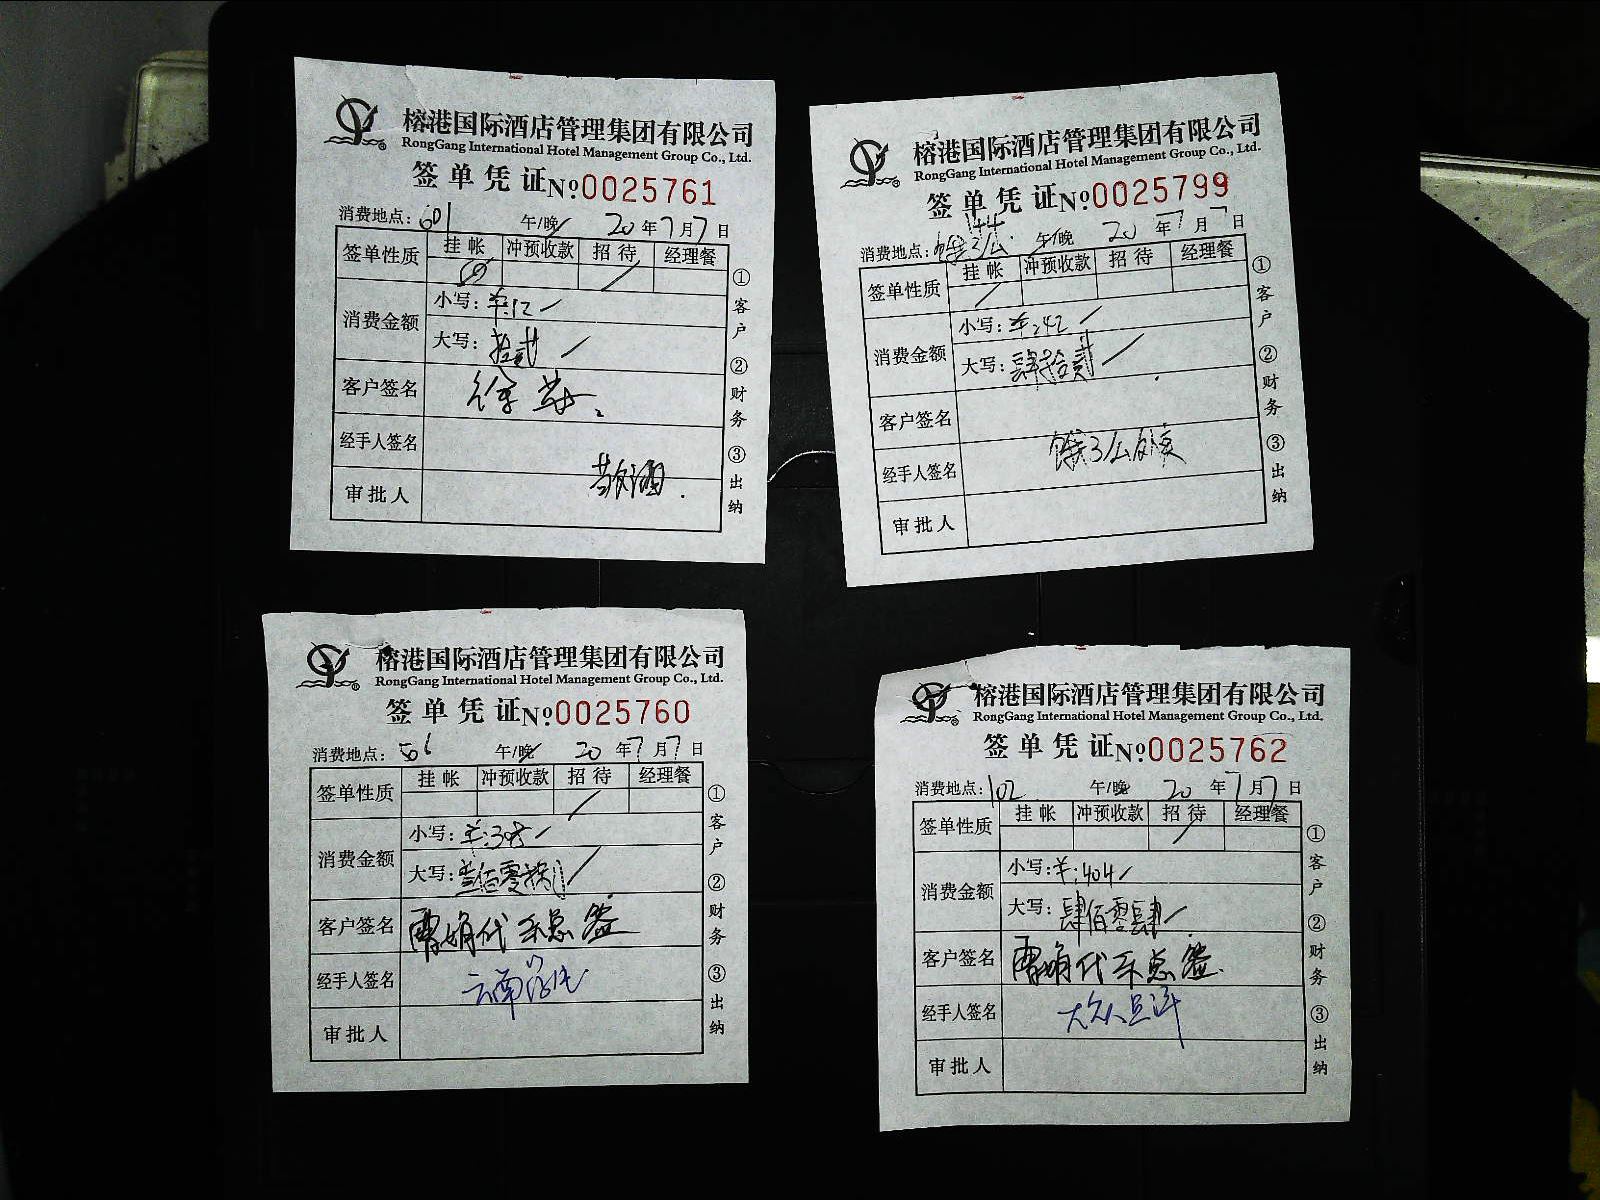 榕港国际酒店管理集团有限公司
RongGang International Hotel Management Group Co., Ltd.
签单凭证 №0025761
消费地点：601 午/晚 20年7月7日
签单性质 挂帐 冲预收款 招待 经理餐
消费金额 小写：¥:12
大写：拾贰
客户签名 徐
经手人签名
审批人 敬酒
①客户 ②财务 ③出纳
榕港国际酒店管理集团有限公司
RongGang International Hotel Management Group Co., Ltd.
签单凭证 №0025799
144
消费地点：饿了么 午/晚 20年7月7日
签单性质 挂帐 冲预收款 招待 经理餐
消费金额 小写：¥:42
大写：肆拾贰
客户签名
经手人签名 饿了么
审批人
①客户 ②财务 ③出纳
榕港国际酒店管理集团有限公司
RongGang International Hotel Management Group Co., Ltd.
签单凭证 №0025760
消费地点： 午/晚 20年7月7日
签单性质 挂帐 冲预收款 招待 经理餐
消费金额 小写：¥:308
大写：叁佰零捌
客户签名 代 总签
经手人签名 云南
审批人
①客户 ②财务 ③出纳
榕港国际酒店管理集团有限公司
RongGang International Hotel Management Group Co., Ltd.
签单凭证 №0025762
消费地点：102 午/晚 20年7月7日
签单性质 挂帐 冲预收款 招待 经理餐
消费金额 小写：¥:404
大写：肆佰零肆
客户签名 代 总签
经手人签名 大众点评
审批人
①客户 ②财务 ③出纳